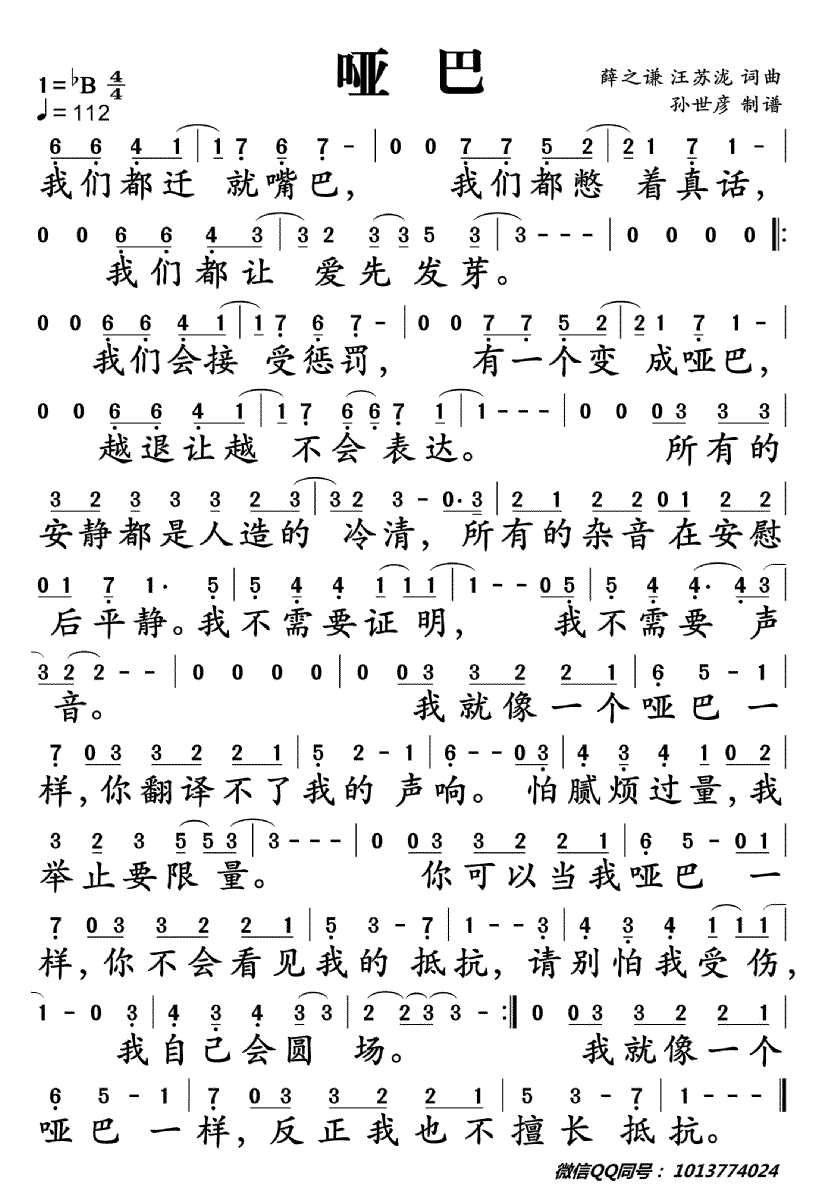 哑 巴
1=♭B 4/4
♩=112
薛之谦 汪苏泷 词曲
孙世彦 制谱
6 6 4 1 | 1 7 6 7 - | 0 0 7 7 5 2 | 2 1 7 1 - |
我们都迁 就嘴巴, 我们都憋 着真话,
0 0 6 6 4 3 | 3 2 3 3 5 3 | 3 - - - | 0 0 0 0 :
我们都让 爱先发芽。
0 0 6 6 4 1 | 1 7 6 7 - | 0 0 7 7 5 2 | 2 1 7 1 - |
我们会接 受惩罚, 有一个变 成哑巴,
0 0 6 6 4 1 | 1 7 6 6 7 1 | 1 - - - | 0 0 0 3 3 3 |
越退让越 不会表达。 所有的
3 2 3 3 3 2 3 | 3 2 3 - 0· 3 | 2 1 2 2 2 0 1 2 2 |
安静都是人造的 冷清, 所有的杂音在安慰
0 1 7 1· 5 | 5 4 4 1 1 1 | 1 - - 0 5 | 5 4 4· 4 4 3 |
后平静。我不需要证明, 我不需要 声
3 2 2 - - | 0 0 0 0 | 0 0 3 3 2 2 1 | 6 5 - 1 |
音。 我就像一个哑巴一
7 0 3 3 2 2 1 | 5 2 - 1 | 6 - - 0 3 | 4 3 4 1 0 2 |
样,你翻译不了我的 声响。 怕腻烦过量,我
3 2 3 5 5 3 | 3 - - - | 0 0 3 3 2 2 1 | 6 5 - 0 1 |
举止要限 量。 你可以当我哑巴 一
7 0 3 3 2 2 1 | 5 3 - 7 | 1 - - 3 | 4 3 4 1 1 1 |
样,你不会看见我的 抵抗, 请别怕我受伤,
1 - 0 3 | 4 3 4 3 3 | 2 2 3 3 - :‖ 0 0 3 3 2 2 1 |
我自己会圆 场。 我就像一个
6 5 - 1 | 7 0 3 3 2 2 1 | 5 3 - 7 | 1 - - - ‖
哑巴 一样, 反正我也不擅长 抵抗。
微信QQ同号：1013774024